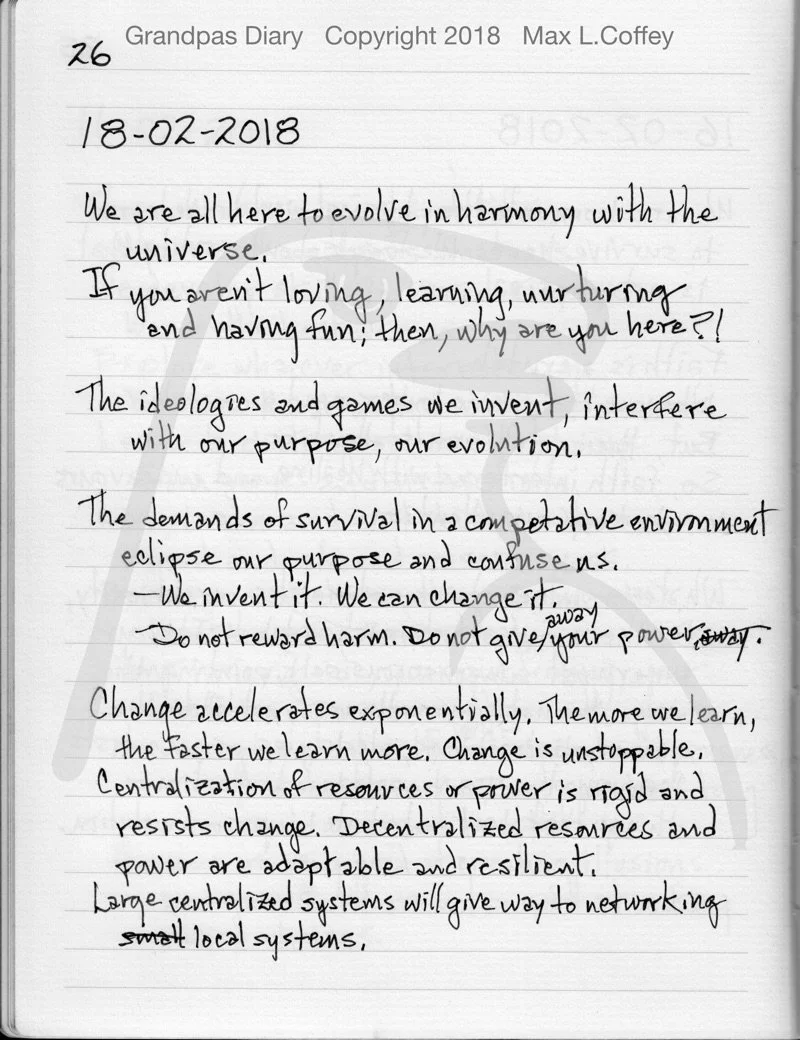 Grandpas Diary Copyright 2018 Max L.Coffey
26
18-02-2018
We are all here to evolve in harmony with the
universe.
If you aren't loving, learning, nurturing
and having fun; then, why are you here?!
The ideologies and games we invent, interfere
with our purpose, our evolution.
The demands of survival in a competative environment
eclipse our purpose and confuse us.
—We invent it. We can change it.
—Do not reward harm. Do not give away your power, away.
Change accelerates exponentially. The more we learn,
the faster we learn more. Change is unstoppable.
Centralization of resources or power is rigid and
resists change. Decentralized resources and
power are adaptable and resilient.
Large centralized systems will give way to networking
small local systems.